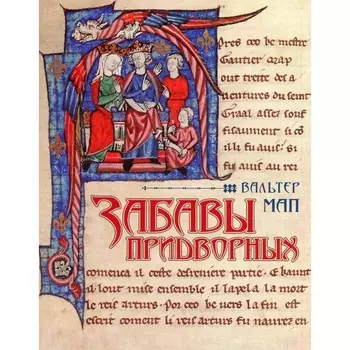 Pres ceo be mestre
Gautier crap
out treite des a
uentures du seint
Graal assez souf
fisaument si cō
il li fu auis: Si
fu auis au rei
ВАЛЬТЕР
МАП
ЗАБАВЫ
ПРИДВОРНЫХ
comenca il ceste desreniere partie. E kaunt
il lout mise ensemble il lapela la mort
le reis arteurs. Por ceo be uers la fin est
escrit coment li reis arteurs fu naurez en